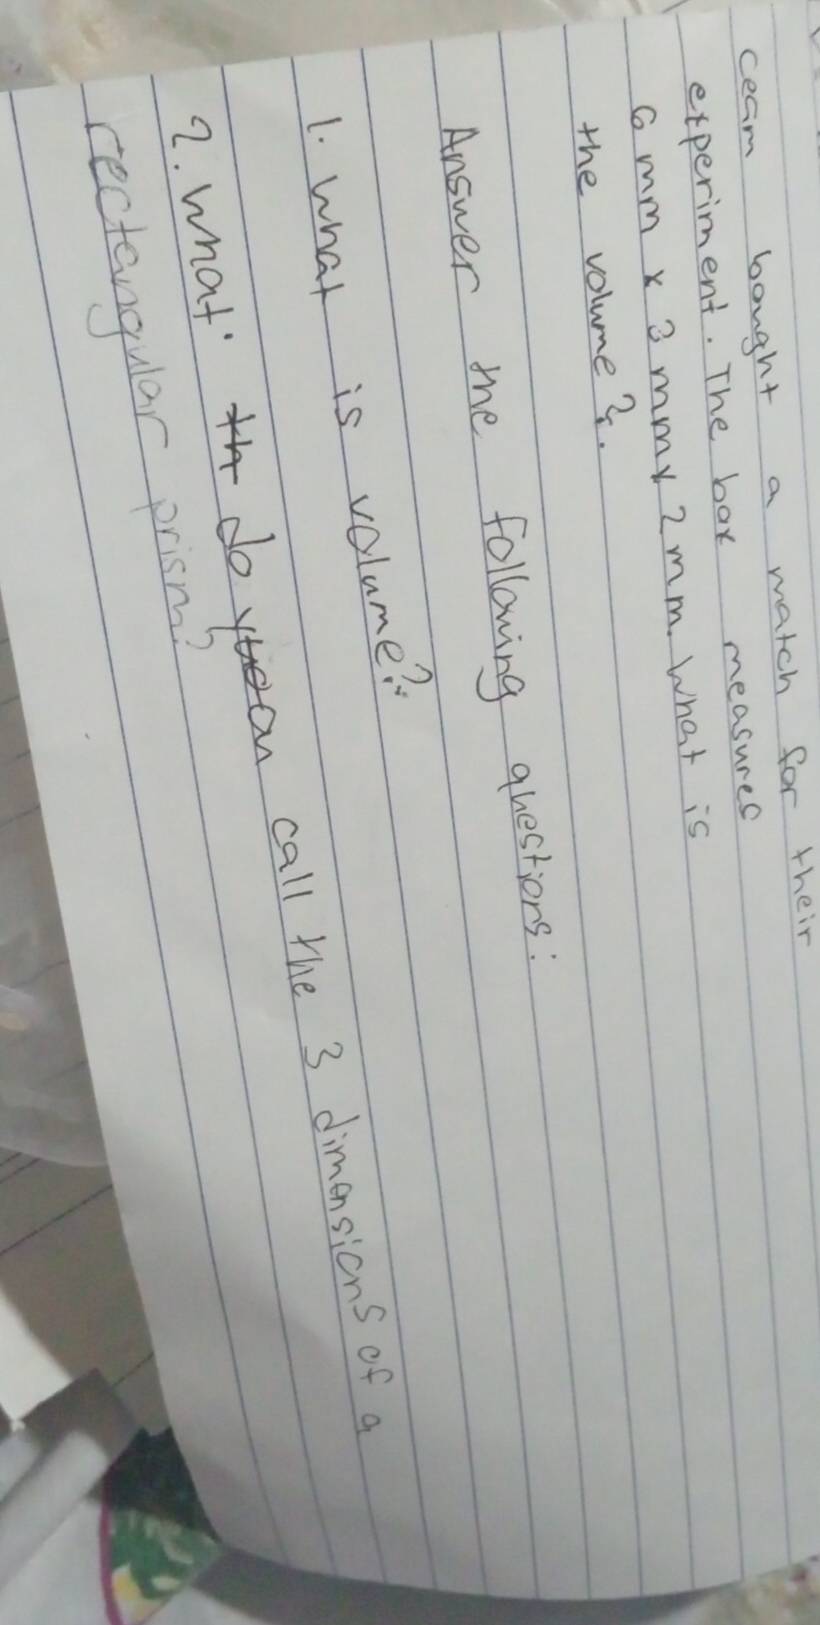 ceam bought a match for their
experiment. The box measures
6 mm x 3 mm x 2 mm. What is
the volume?.
Answer the following questions:
1. What is volume?
2. What do you call the 3 dimensions of a
rectangular prism?